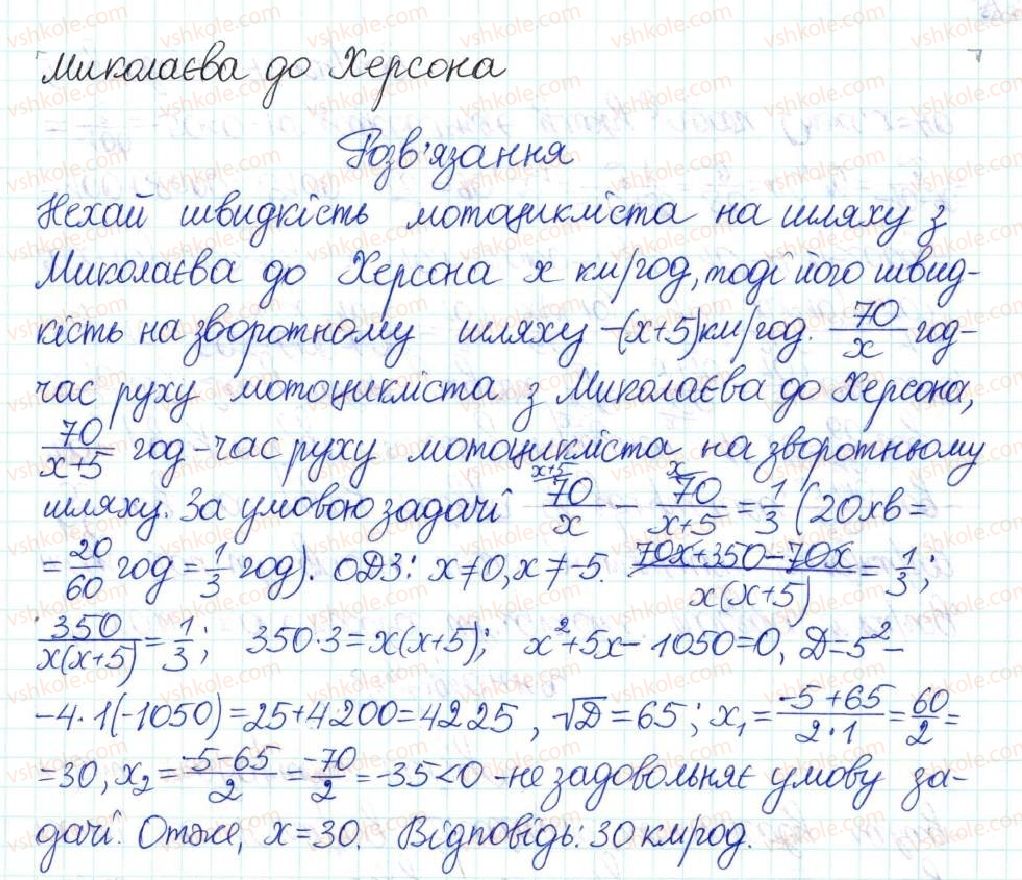 Миколаєва до Херсона
Розв'язання
Нехай швидкість мотоцикліста на шляху з
Миколаєва до Херсона x км/год, тоді його швид-
кість на зворотному шляху -(x+5) км/год. 70/x год-
час руху мотоцикліста з Миколаєва до Херсона,
70/(x+5) год - час руху мотоцикліста на зворотньому
шляху. За умовою задачі 70/x (x+5) - 70/(x+5) (x) = 1/3 (20хв =
= 20/60 год = 1/3 год). ОДЗ: x≠0, x≠-5. (70x+350-70x)/(x(x+5)) = 1/3;
350/(x(x+5)) = 1/3; 350·3 = x(x+5); x²+5x-1050=0, D=5²-
-4·1(-1050)=25+4200=4225, √D=65; x₁ = (-5+65)/(2·1) = 60/2 =
=30, x₂ = (-5-65)/2 = -70/2 = -35<0 -не задовольняє умову за-
дачі. Отже, x=30. Відповідь: 30 км/год.
vshkole.com